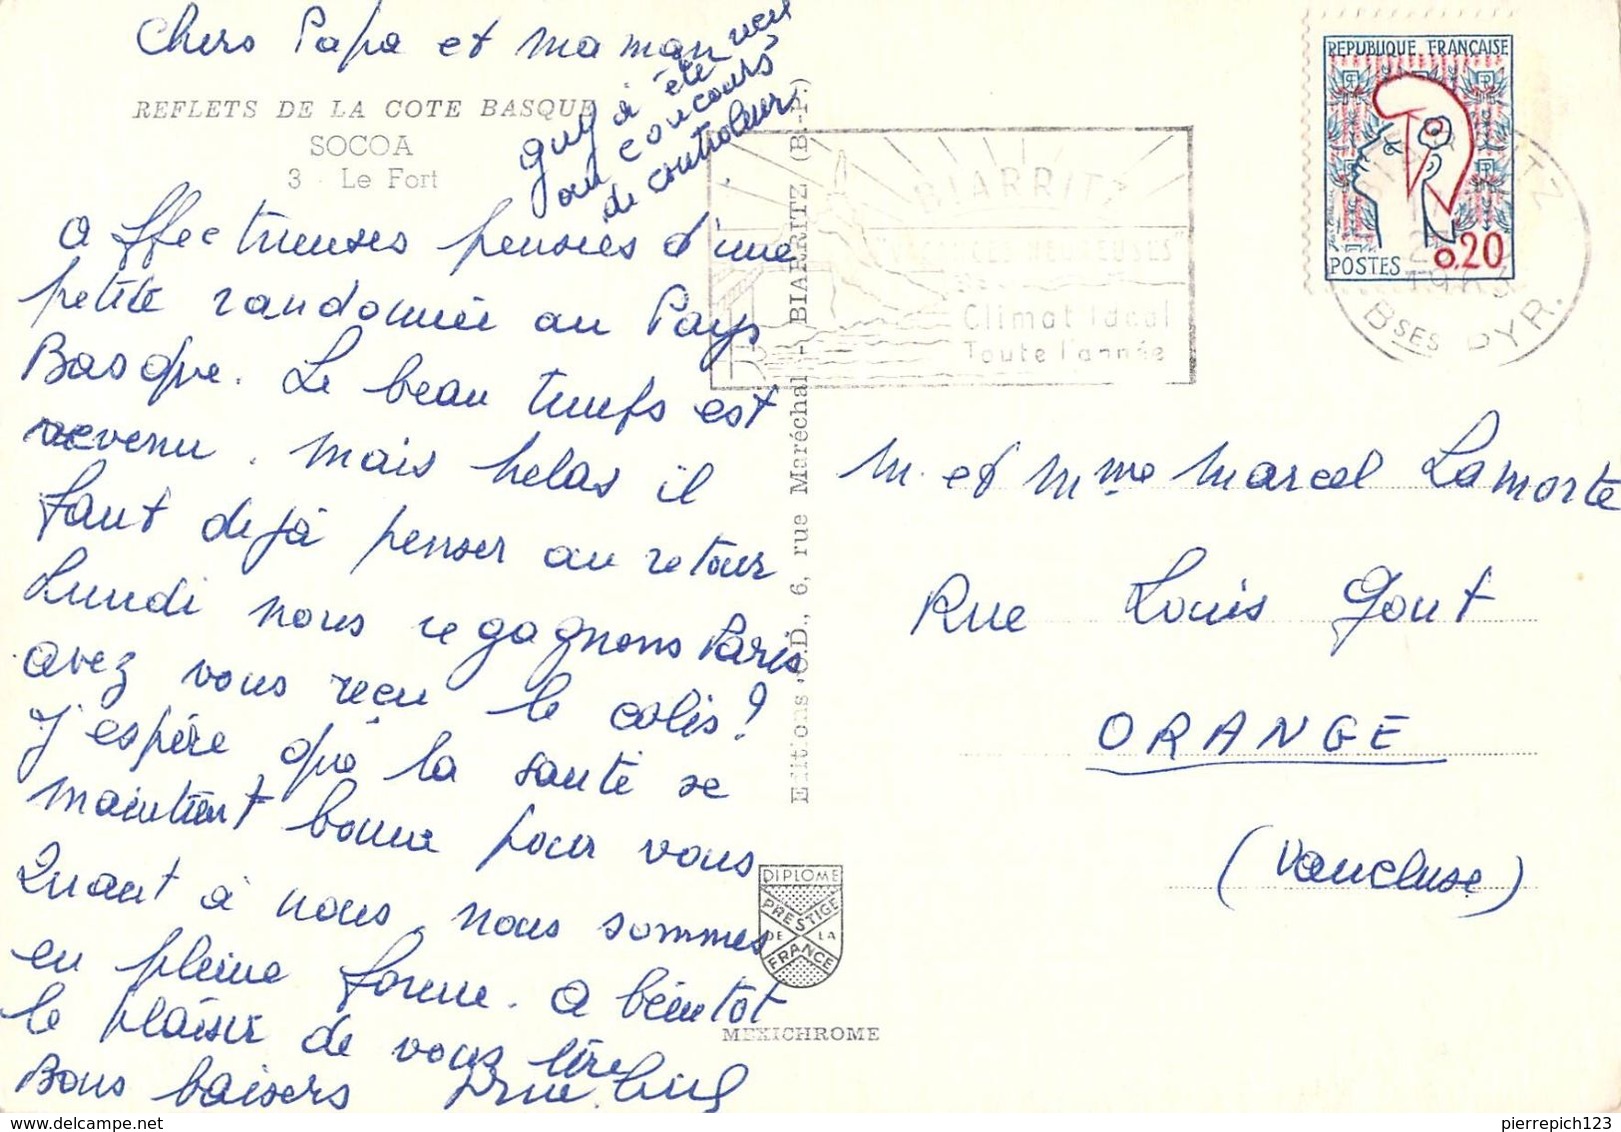 Chers Papa et maman
guy a été reçu
au concours
de controleur
REFLETS DE LA COTE BASQUE
SOCOA
3 - Le Fort
affectueuses pensées d'une
petite randonnée au Pays
Basque. Le beau temps est
revenu. Mais helas il
faut dejà penser au retour
Lundi nous regagnons Paris
avez vous reçu le colis?
J'espère que la santé se
maintient bonne pour vous
Quant à nous, nous sommes
en pleine forme. a bientot
le plaisir de vous lire
Bons baisers
Editions , 6, rue Maréchal - BIARRITZ - BIARRITZ (B.-P.)
BIARRITZ
"VACANCES HEUREUSES"
Climat Idéal
Toute l'année
REPUBLIQUE FRANÇAISE
POSTES 0,20
BIARRITZ
1963
BSES PYR.
M. et Mme Marcel Lamorte
Rue Louis Gout
ORANGE
(Vaucluse)
DIPLOME
PRESTIGE
DE LA
FRANCE
MEXICHROME
pierrepich123